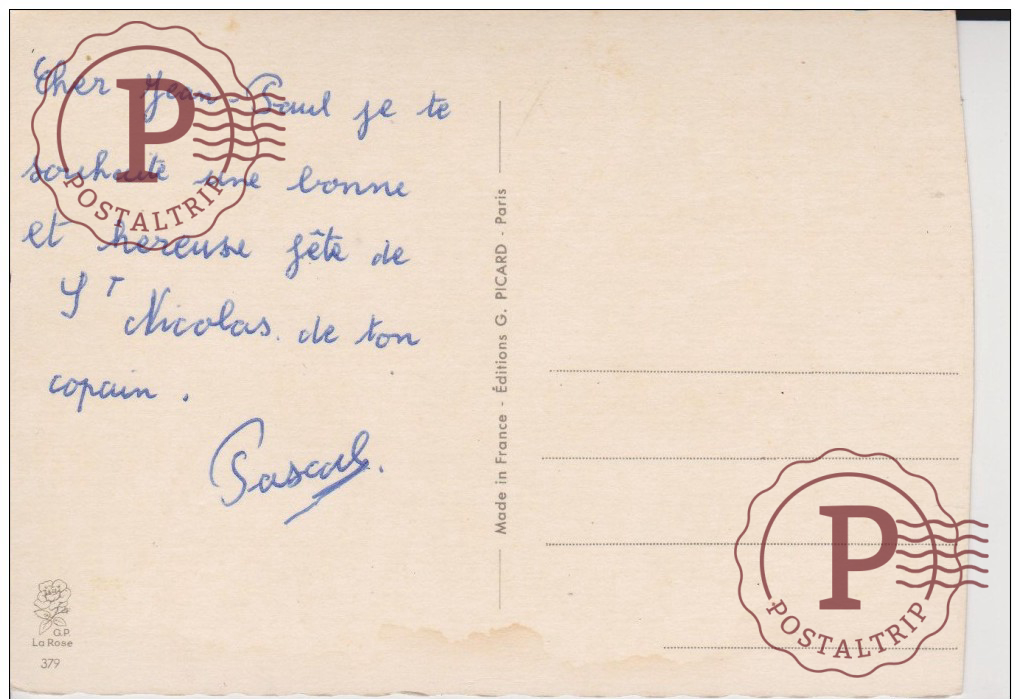 Cher Jean-Paul je te
souhaite une bonne
et hereuse fête de
St Nicolas. de ton
copain.
Pascal.
Made in France - Éditions G. PICARD - Paris
G.P.
La Rose
379
P
POSTALTRIP
P
POSTALTRIP